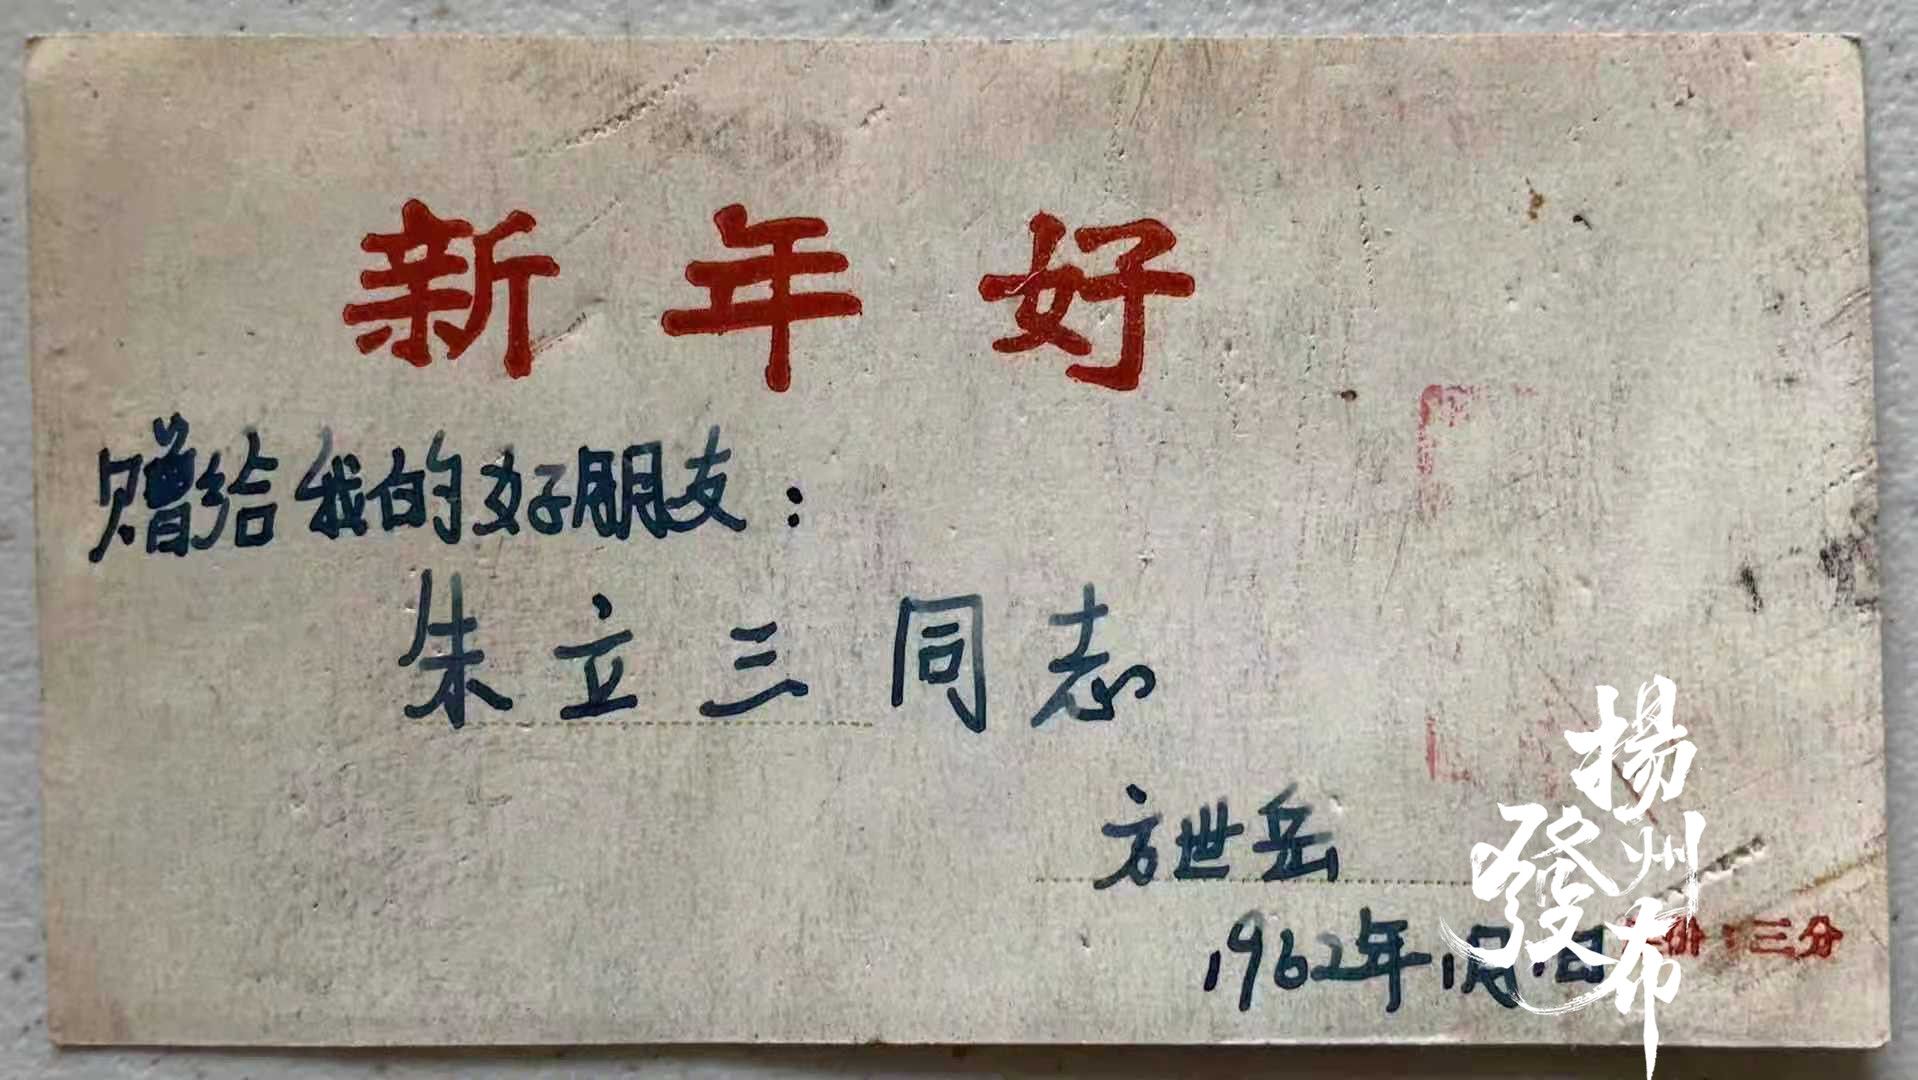 新年好
赠给我的好朋友：
朱立三同志
方世岳
1962年1月1日
价：三分
揚州
發布